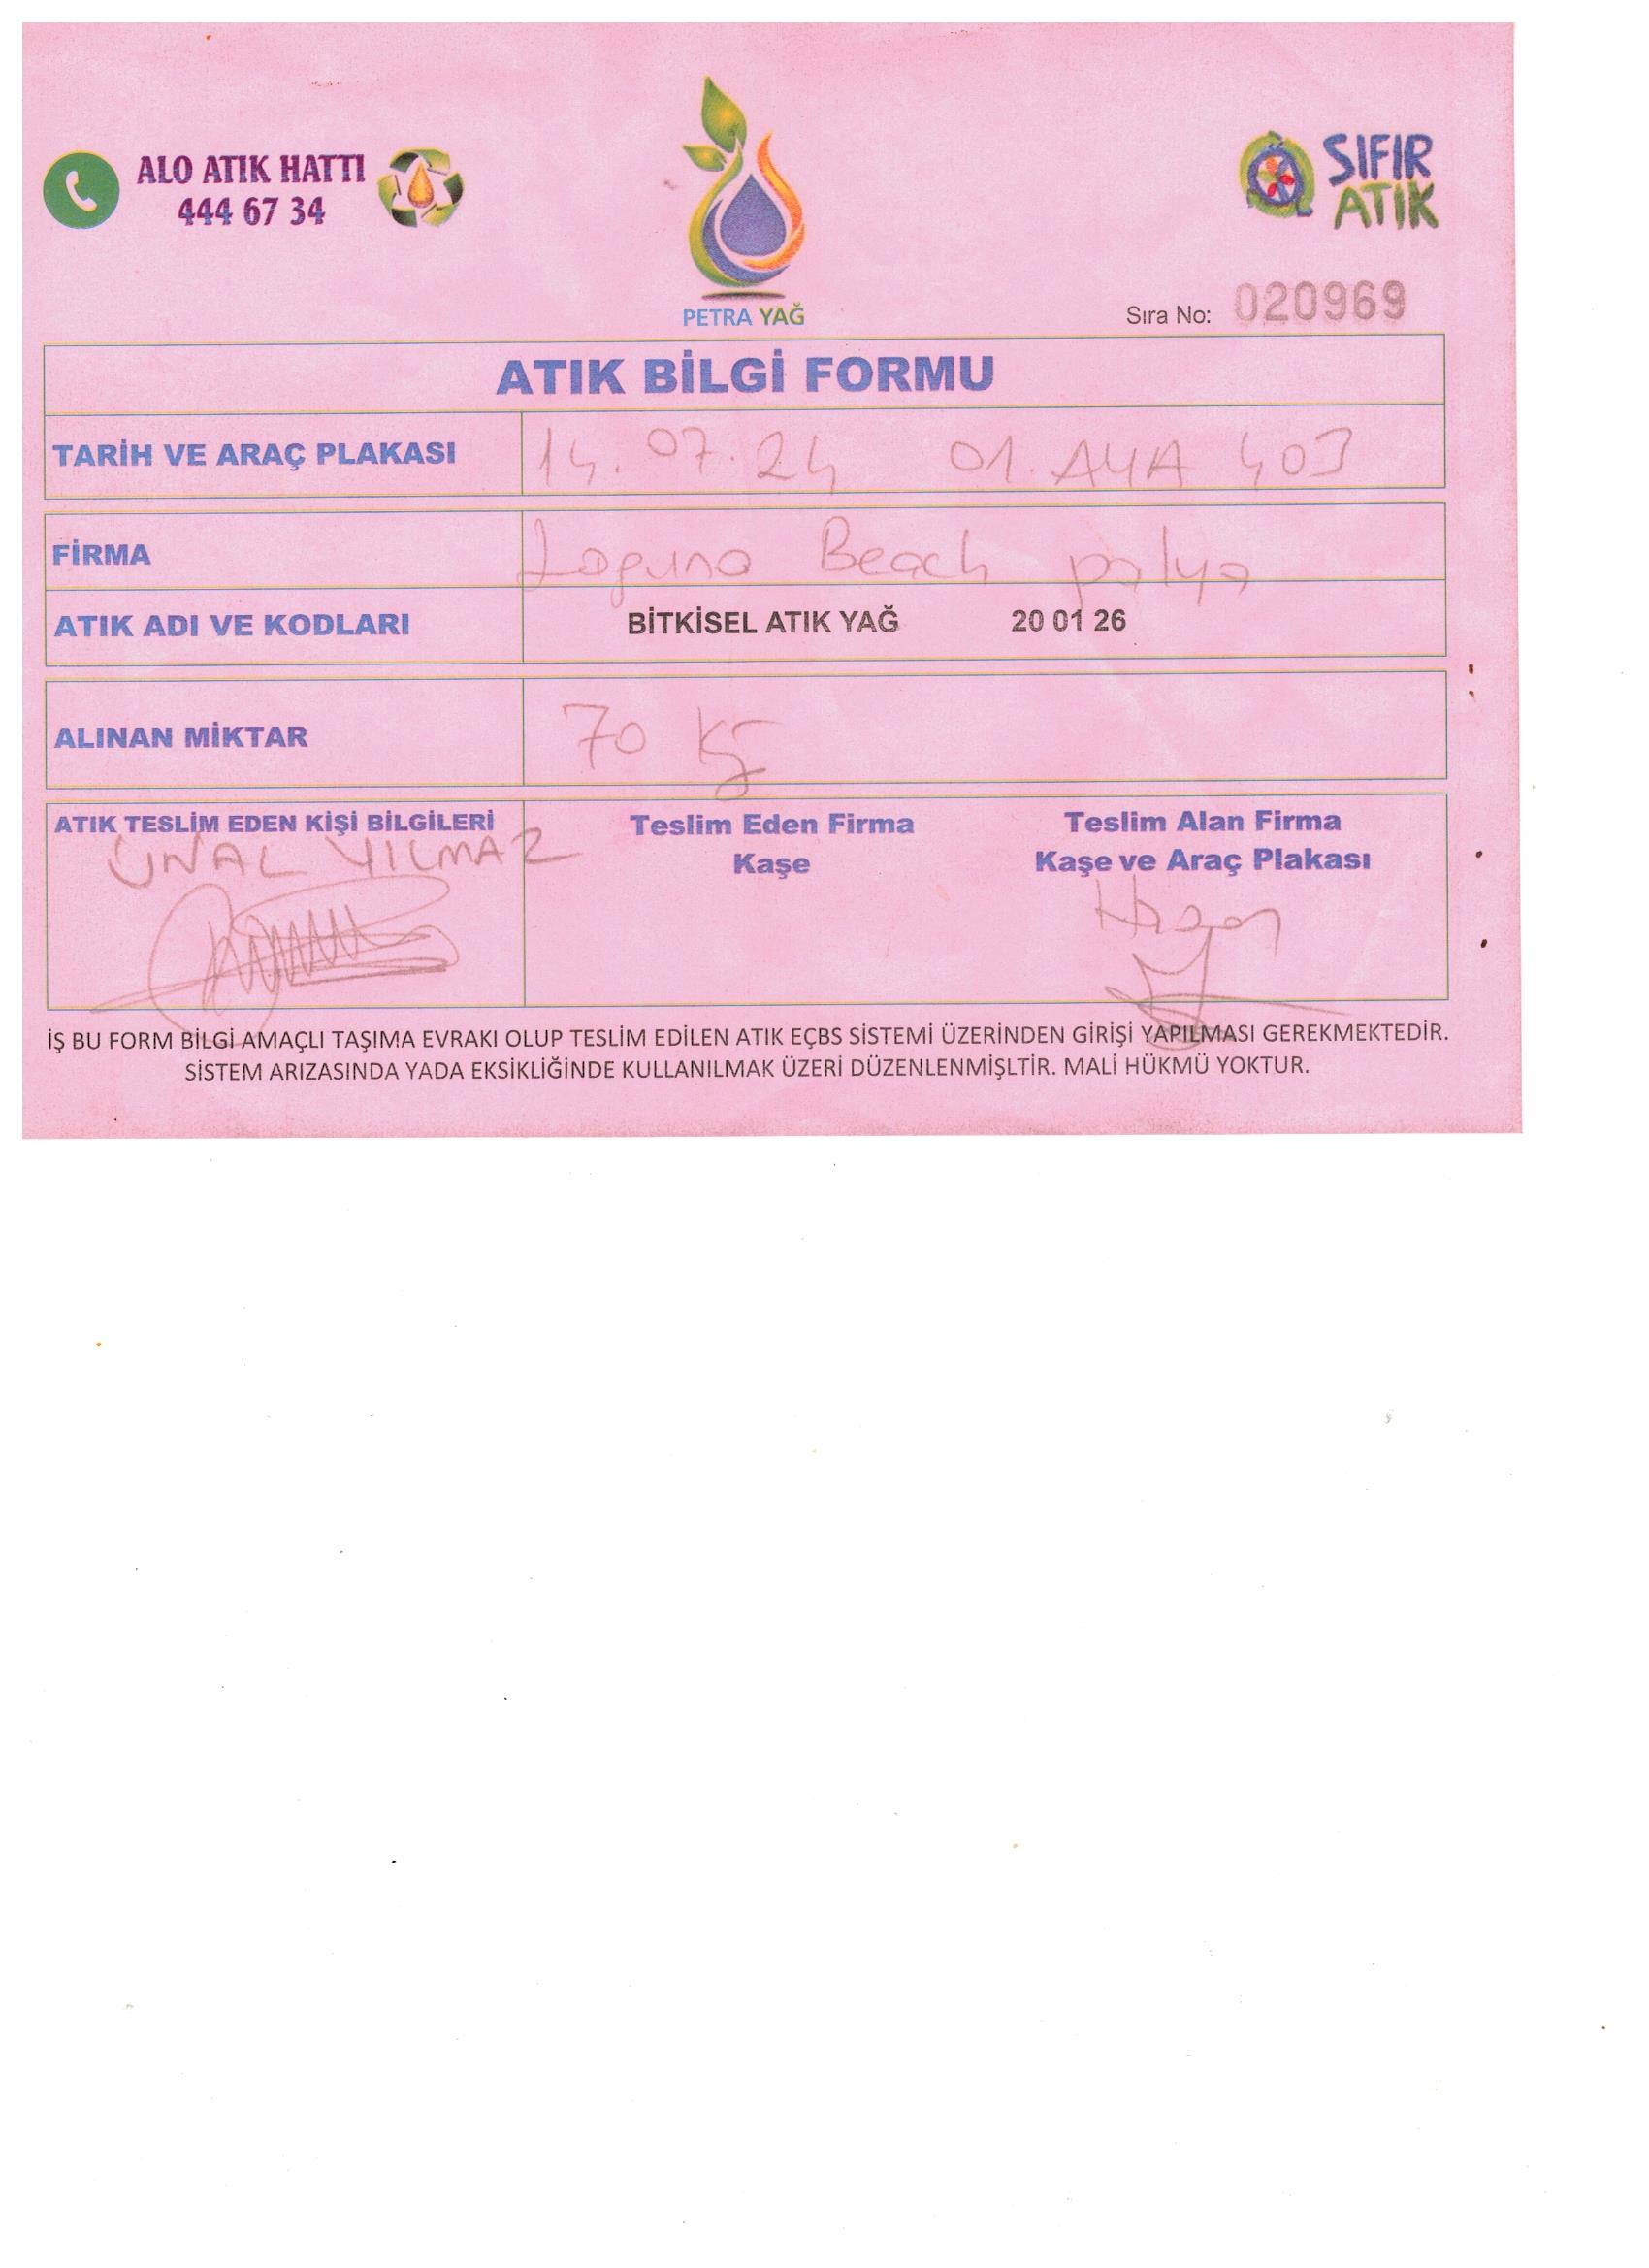 ALO ATIK HATTI
444 67 34
PETRA YAĞ
SIFIR
ATIK
Sıra No: 020969
ATIK BİLGİ FORMU
TARİH VE ARAÇ PLAKASI 14.07.24 01. AYA 403
FİRMA Laguna Beach palya
ATIK ADI VE KODLARI BİTKİSEL ATIK YAĞ 20 01 26
ALINAN MİKTAR 70 Kg
ATIK TESLİM EDEN KİŞİ BİLGİLERİ
ÜNAL YILMAZ
Teslim Eden Firma
Kaşe
Teslim Alan Firma
Kaşe ve Araç Plakası
İŞ BU FORM BİLGİ AMAÇLI TAŞIMA EVRAKI OLUP TESLİM EDİLEN ATIK EÇBS SİSTEMİ ÜZERİNDEN GİRİŞİ YAPILMASI GEREKMEKTEDİR.
SİSTEM ARIZASINDA YADA EKSİKLİĞİNDE KULLANILMAK ÜZERİ DÜZENLENMİŞLTİR. MALİ HÜKMÜ YOKTUR.